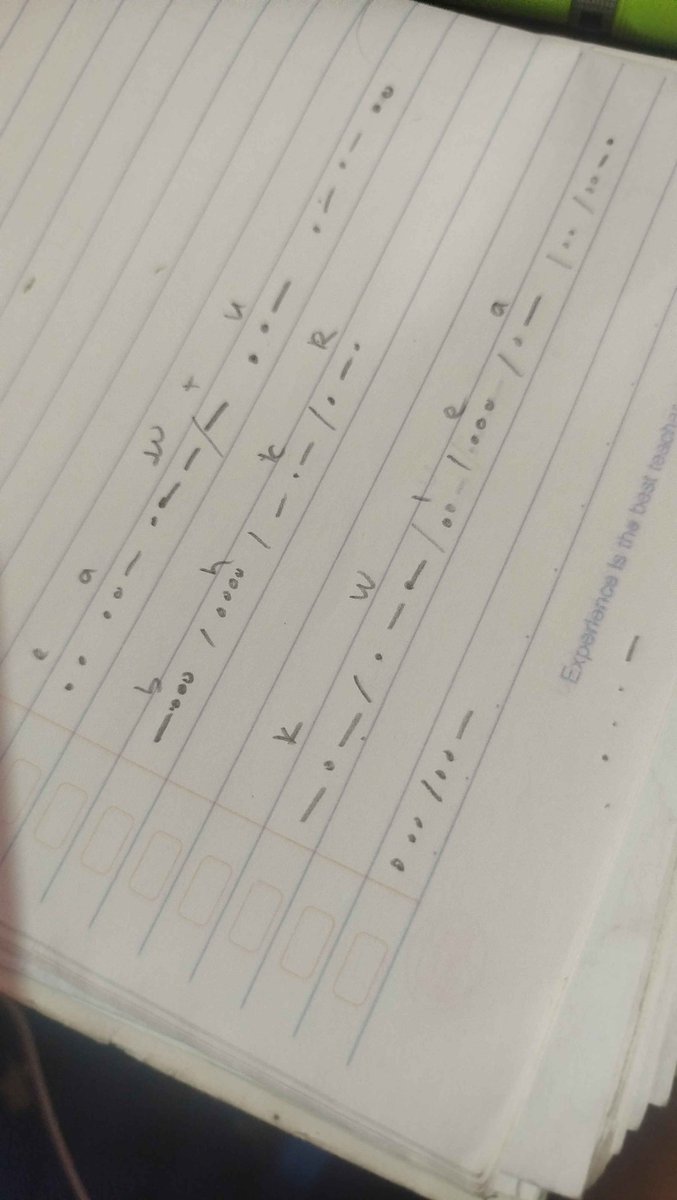 e a w t u
.. ..- .--- /- ..- .-.- ..
b h k R
-... / .... / -.- / ..-.
k w e a
-.- / .-- / ..- / .... / .- / .. / ..-.
... / ..-
Experience is the best teacher
....-